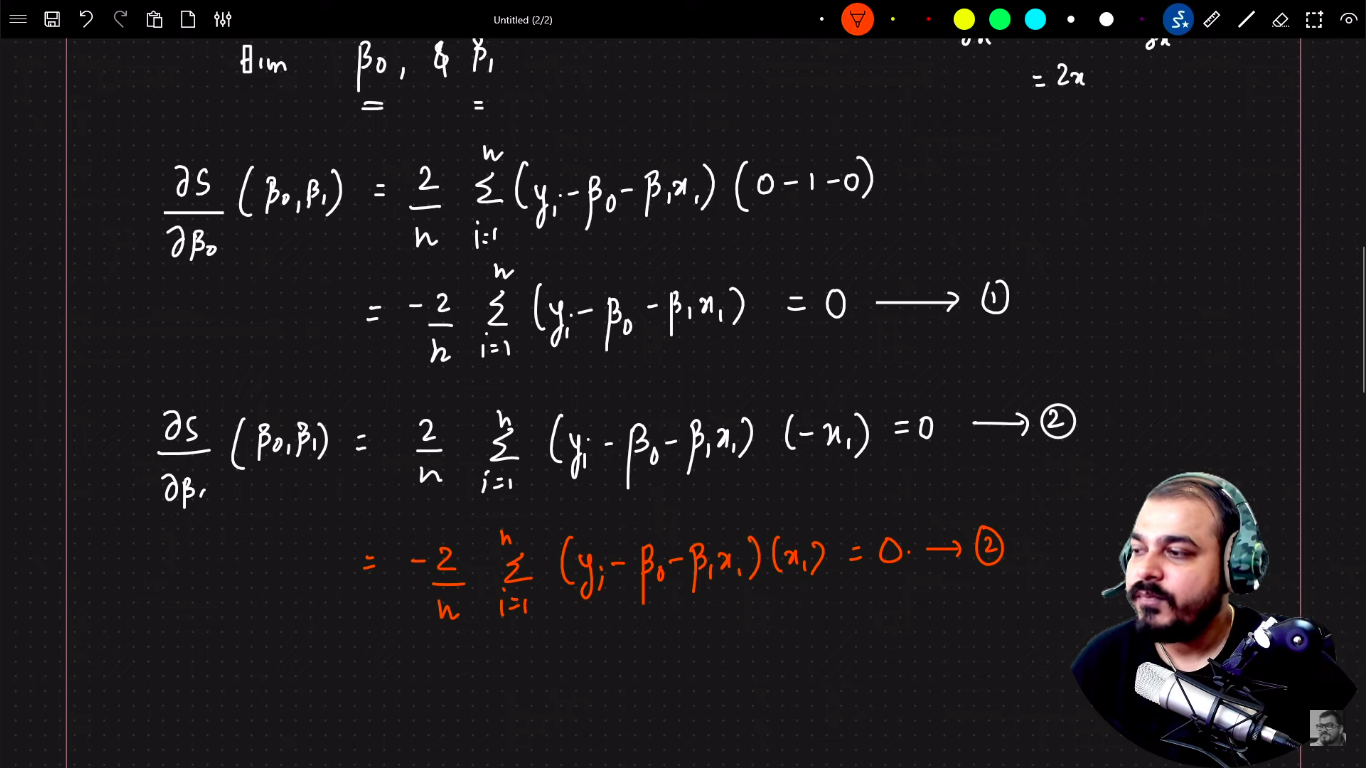 Untitled (2/2)
Aim β₀, & β₁
= 2x
∂S/∂β₀ (β₀,β₁) = 2/n Σ_{i=1}^{n} (yᵢ - β₀ - β₁x₁) (0-1-0)
= -2/n Σ_{i=1}^{n} (yᵢ - β₀ - β₁x₁) = 0 ⟶ ①
∂S/∂β₁ (β₀,β₁) = 2/n Σ_{i=1}^{n} (yᵢ - β₀ - β₁x₁) (-x₁) = 0 ⟶ ②
= -2/n Σ_{i=1}^{n} (yᵢ - β₀ - β₁x₁)(x₁) = 0. ⟶ ②